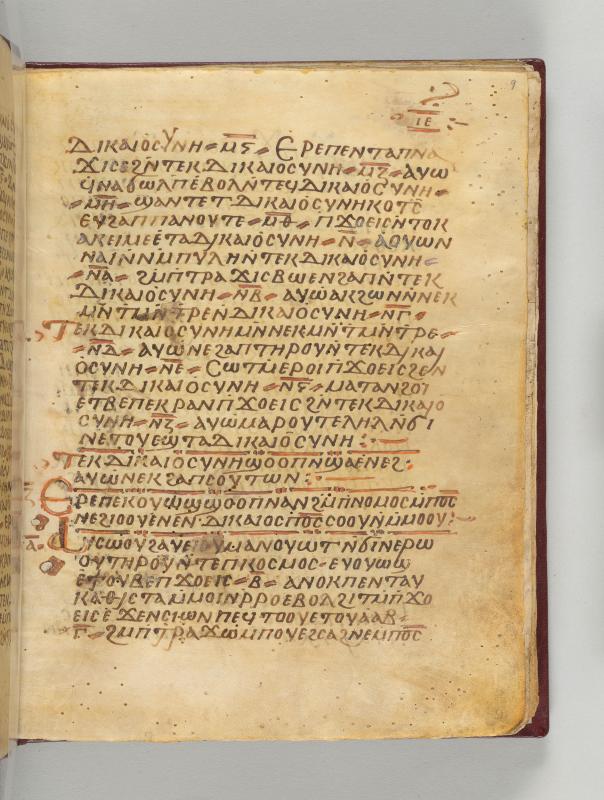 9
ⲓⲉ
ⲇⲓⲕⲁⲓⲟⲥⲩⲛⲏ ⲙⲋ ⲉⲣⲉⲡⲉⲛⲧⲁⲡⲛⲁ
ϫⲓⲥⲉϩⲛⲧⲉⲕⲇⲓⲕⲁⲓⲟⲥⲩⲛⲏ ⲙⲍ ⲁⲩⲱ
ⲛⲧⲉϥⲇⲓⲕⲁⲓⲟⲥⲩⲛⲏ
ⲙⲏ ϣⲁⲛⲧⲉⲧⲇⲓⲕⲁⲓⲟⲥⲩⲛⲏⲕⲟⲧⲥ̄
ⲉⲩϩⲁⲡ ⲡⲁⲛⲟⲩⲧⲉ ⲙⲑ ⲡϫⲟⲉⲓⲥⲛⲧⲟⲕ
ⲁⲕⲉⲓⲙⲉⲉⲧⲁⲇⲓⲕⲁⲓⲟⲥⲩⲛⲏ ⲛ̄ ⲁⲟⲩⲱⲛ
ⲛⲁⲓⲛⲙⲡⲩⲗⲏⲛⲧⲉⲕⲇⲓⲕⲁⲓⲟⲥⲩⲛⲏ
ⲛⲁ ϩⲙⲡⲧⲣⲁϫⲓⲥⲃⲱⲉⲛϩⲁⲡⲛⲧⲉⲕ
ⲇⲓⲕⲁⲓⲟⲥⲩⲛⲏ ⲛⲃ ⲁⲩⲱⲁⲕϩⲱⲛⲛⲛⲉⲕ
ⲙⲛⲧⲙⲛⲧⲣⲉⲛⲇⲓⲕⲁⲓⲟⲥⲩⲛⲏ ⲛⲅ
ⲧⲉⲕⲇⲓⲕⲁⲓⲟⲥⲩⲛⲏⲙⲛⲛⲉⲕⲙⲛⲧⲙⲛⲧⲣⲉ
ⲛⲇ ⲁⲩⲱⲛⲉϩⲁⲡⲧⲏⲣⲟⲩⲛⲧⲉⲕⲇⲓⲕⲁⲓ
ⲟⲥⲩⲛⲏ ⲛⲉ ⲥⲱⲧⲙⲉⲣⲟⲓⲡϫⲟⲉⲓⲥϩⲛ
ⲧⲉⲕⲇⲓⲕⲁⲓⲟⲥⲩⲛⲏ ⲛⲋ ⲙⲁⲧⲁⲛϩⲟⲓ
ⲉⲧⲃⲉⲡⲉⲕⲣⲁⲛⲡϫⲟⲉⲓⲥϩⲛⲧⲉⲕⲇⲓⲕⲁⲓⲟ
ⲥⲩⲛⲏ ⲛⲍ ⲁⲩⲱⲙⲁⲣⲟⲩⲧⲉⲗⲏⲗⲛϭⲓ
ⲛⲉⲧⲟⲩⲉϣⲧⲁⲇⲓⲕⲁⲓⲟⲥⲩⲛⲏ
ⲧⲉⲕⲇⲓⲕⲁⲓⲟⲥⲩⲛⲏϣⲟⲟⲡⲛϣⲁⲉⲛⲉϩ
ⲁⲩⲱⲛⲉⲕϩⲁⲡⲥⲟⲩⲧⲱⲛ
ⲉⲣⲉⲡⲉⲕⲟⲩⲱϣϣⲟⲟⲡⲛⲁⲛϩⲙⲡⲛⲟⲙⲟⲥⲙⲡⲟ̄ⲥ̄
ⲛⲉϩⲓⲟⲟⲩⲉⲛⲉⲛⲇⲓⲕⲁⲓⲟⲥⲡⲟ̄ⲥ̄ⲥⲟⲟⲩⲛⲙⲙⲟⲟⲩ
ⲁⲩⲥⲱⲟⲩϩⲁⲩⲉⲓⲟⲩⲙⲁⲛⲟⲩⲱⲧⲛϭⲓⲛⲉⲣⲱ
ⲟⲩⲧⲏⲣⲟⲩⲛⲧⲉⲡⲕⲟⲥⲙⲟⲥ ⲉⲩⲟⲩⲱϣ
ⲉϯⲟⲩⲃⲉⲡϫⲟⲉⲓⲥ ⲃ̄ ⲁⲛⲟⲕⲡⲉⲛⲧⲁⲩ
ⲕⲁⲑⲓⲥⲧⲁⲙⲙⲟⲓⲛⲣⲣⲟⲉⲃⲟⲗϩⲓⲧⲙⲡϫⲟ
ⲉⲓⲥⲉϫⲉⲛⲥⲓⲱⲛⲡⲉϥⲧⲟⲟⲩⲉⲧⲟⲩⲁⲁⲃ
ⲅ̄ ϩⲙⲡⲧⲣⲁϫⲱⲙⲡⲟⲩⲉϩⲥⲁϩⲛⲉⲙⲡⲟ̄ⲥ̄